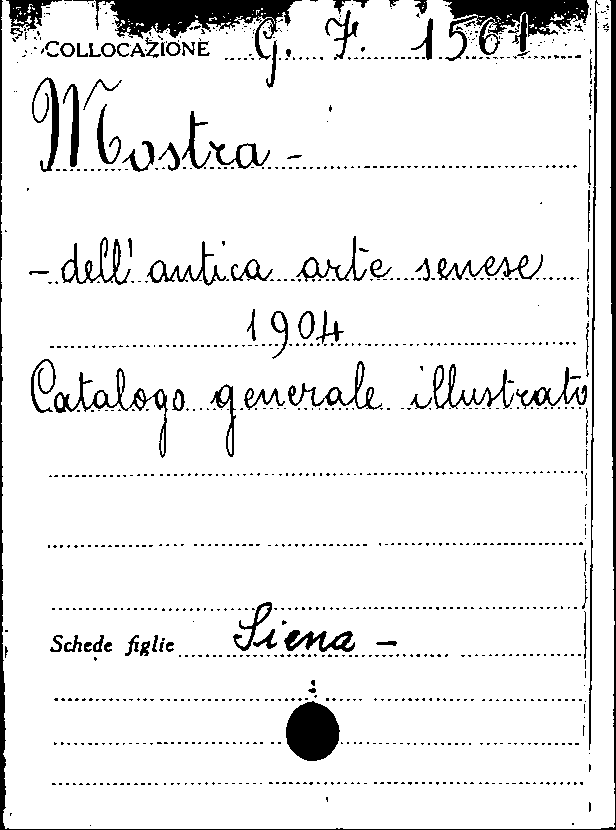 COLLOCAZIONE G. F. 1561
Mostra -
- dell' antica arte senese
1904
Catalogo generale illustrato
Schede figlie Siena -